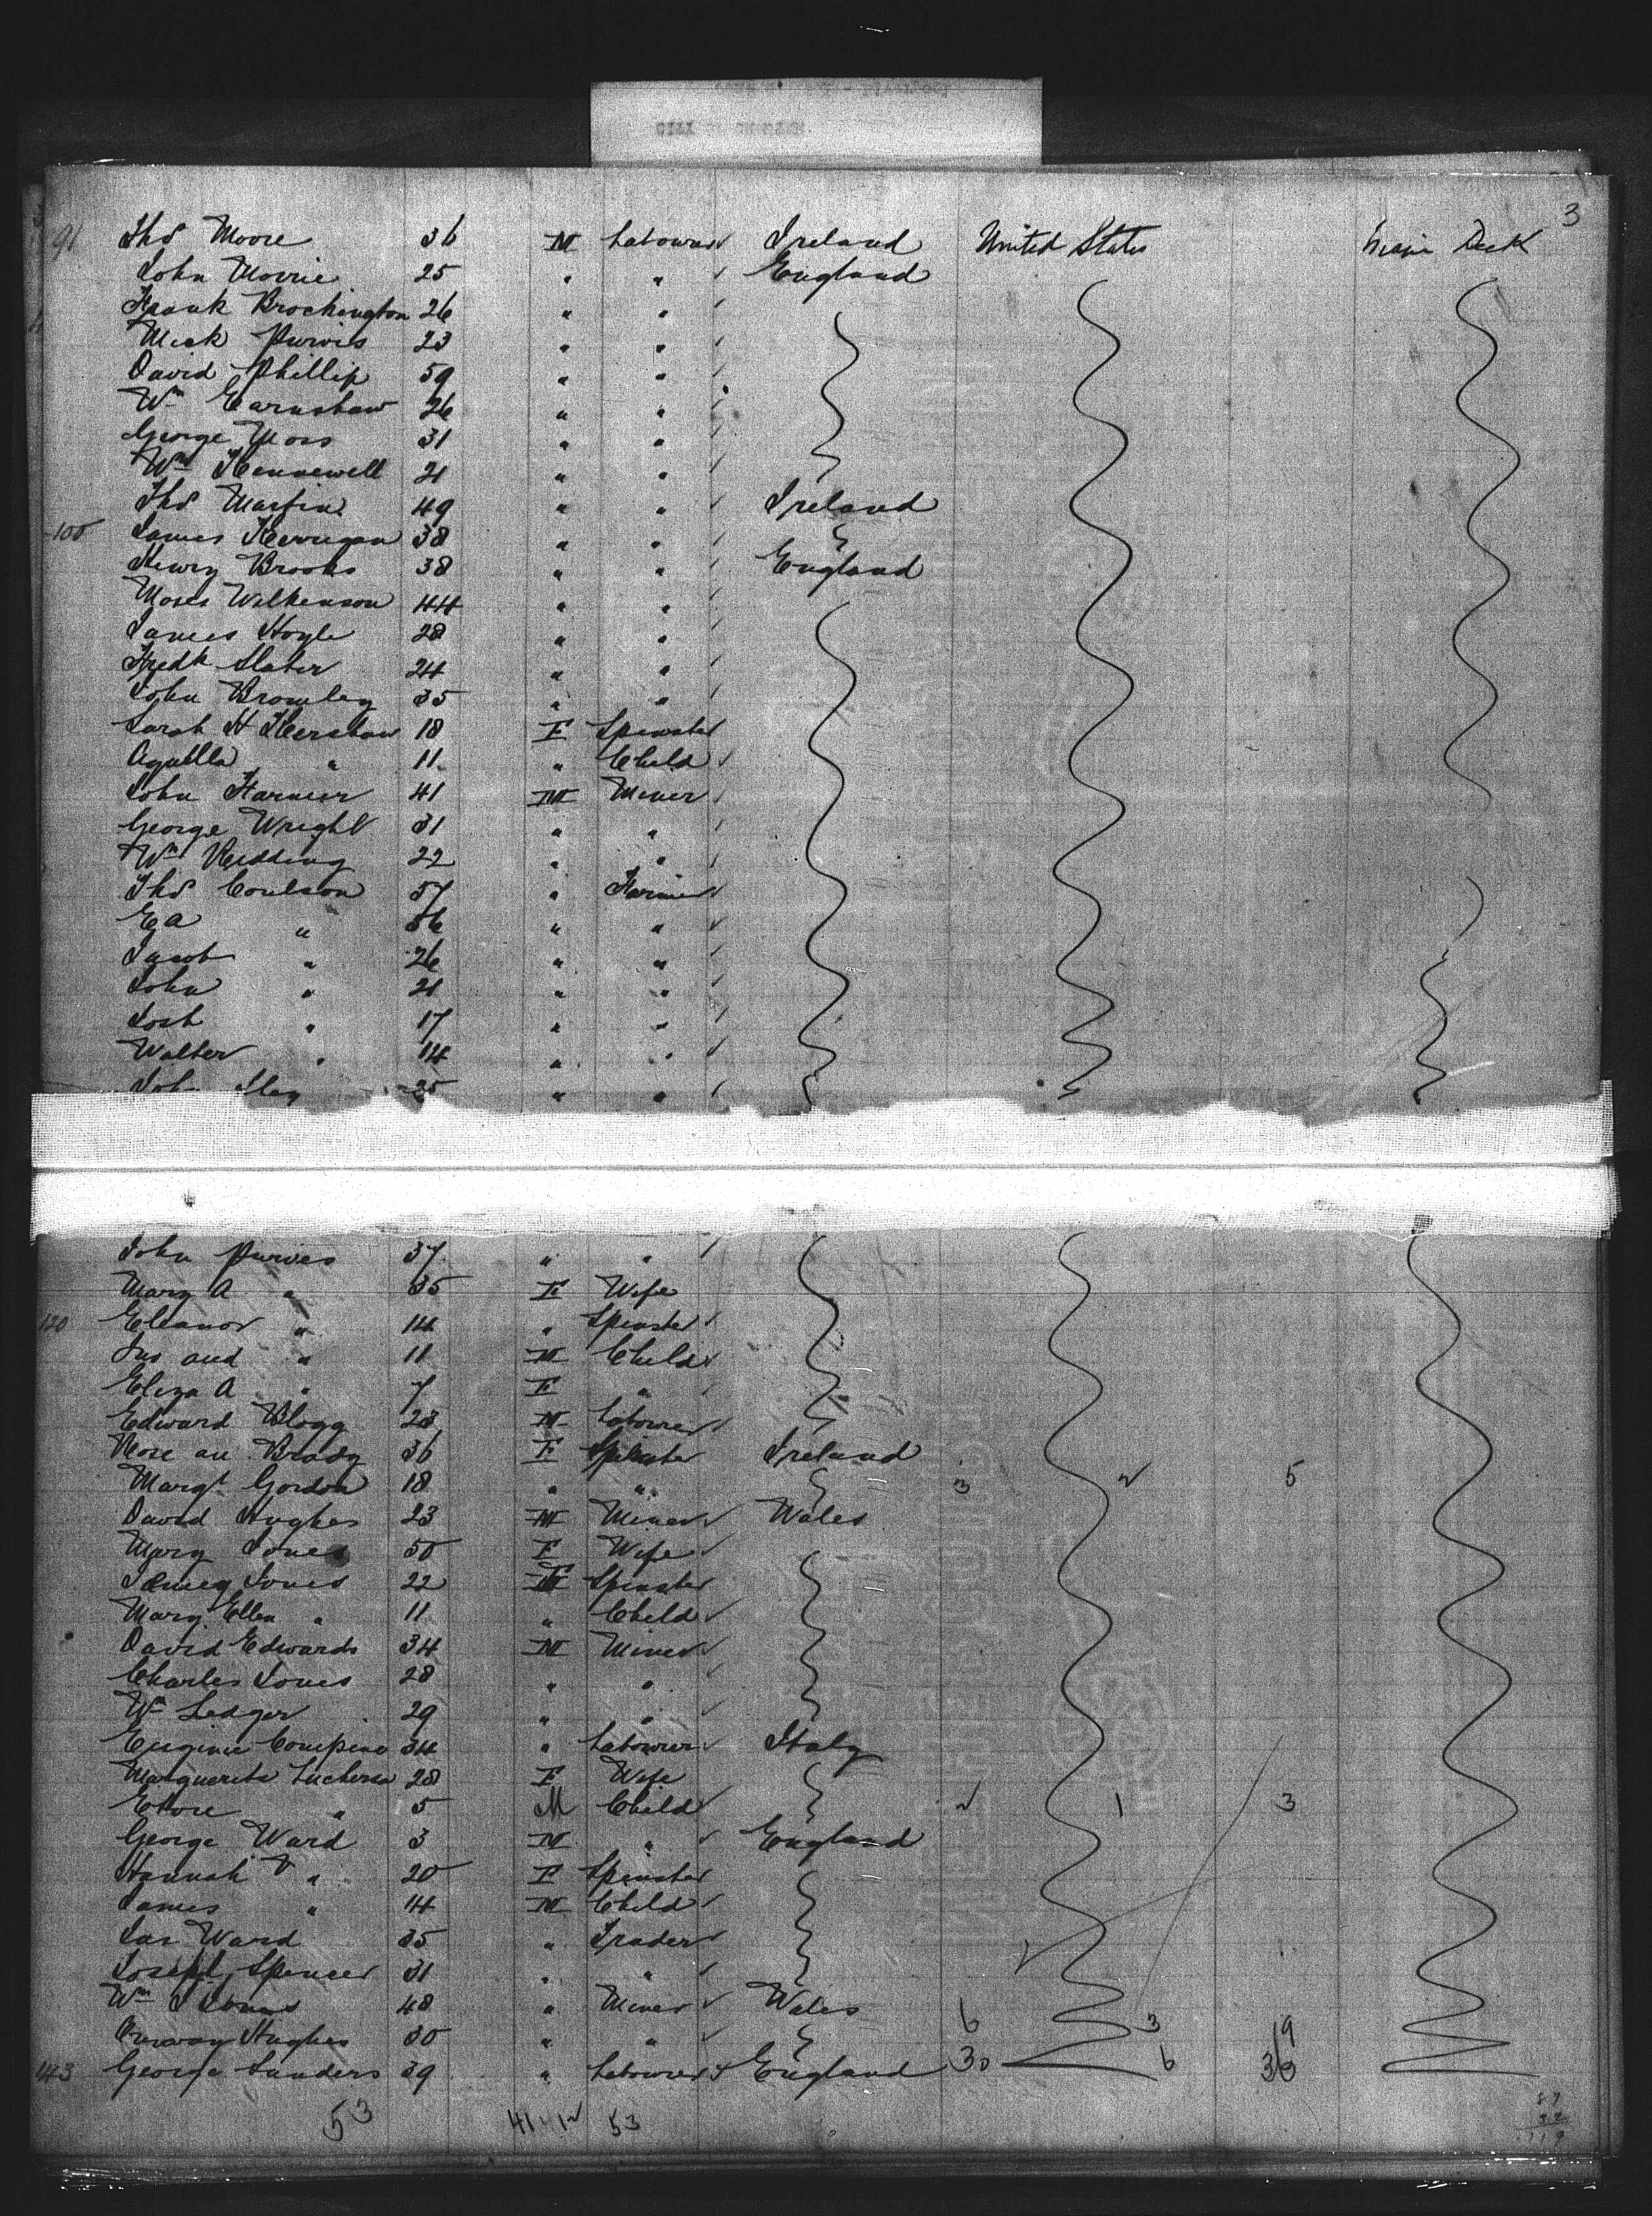 3
91 Thos Moore 36 M Labourer Ireland United States Main Deck
John Morrie 25 " " England
Frank Brockington 26 " "
Mick Purvis 23 " "
David Phillip 59 " "
Wm Earnshaw 26 " "
George Moss 31 " "
Wm Hennewell 21 " "
Thos Martin 49 " " Ireland
100 James Kerrigan 38 " "
Henry Brooks 38 " " England
Moses Wilkenson 44 " "
James Hoyle 28 " "
Fredk Slater 24 " "
John Bromley 35 " "
Sarah H Kershaw 18 F Spinster
Aquilla " 11 " Child
John Farmer 41 M Miner
George Wright 31 " "
Wm Redding 22 " "
Thos Coulson 57 " Farmer
E A " 56 " "
Jacob " 26 " "
John " 21 " "
Josh " 17 " "
Walter " 14 " "
John 25 " "
John Purves 37 " "
Mary A " 35 F Wife
120 Eleanor " 14 " Spinster
Jno and " 11 M Child
Eliza A " 7 F "
Edward Blogg 23 M Labourer
Rose an Brady 36 F Spinster Ireland
Margt Gordon 18 " " 3 2 5
David Hughes 23 M Miner Wales
Mary Jones 50 F Wife
Jones 22 F Spinster
Mary Ellen " 11 " Child
David Edwards 34 M Miner
Charles Jones 28 " "
Wm Ledger 29 " "
34 " Labourer Italy
Marguerita 28 F Wife
Etore " 5 M Child 2 1 3
George Ward 3 M " England
Hannah " 20 F Spinster
James " 14 M Child
Jas Ward 35 " Trader
Joseph Spencer 31 " "
Wm 48 " Miner Wales
Hughes 30 " " 6 3 9
143 George Sanders 39 " Labourer England 30 6 36
53 41 12 53
87
32
119